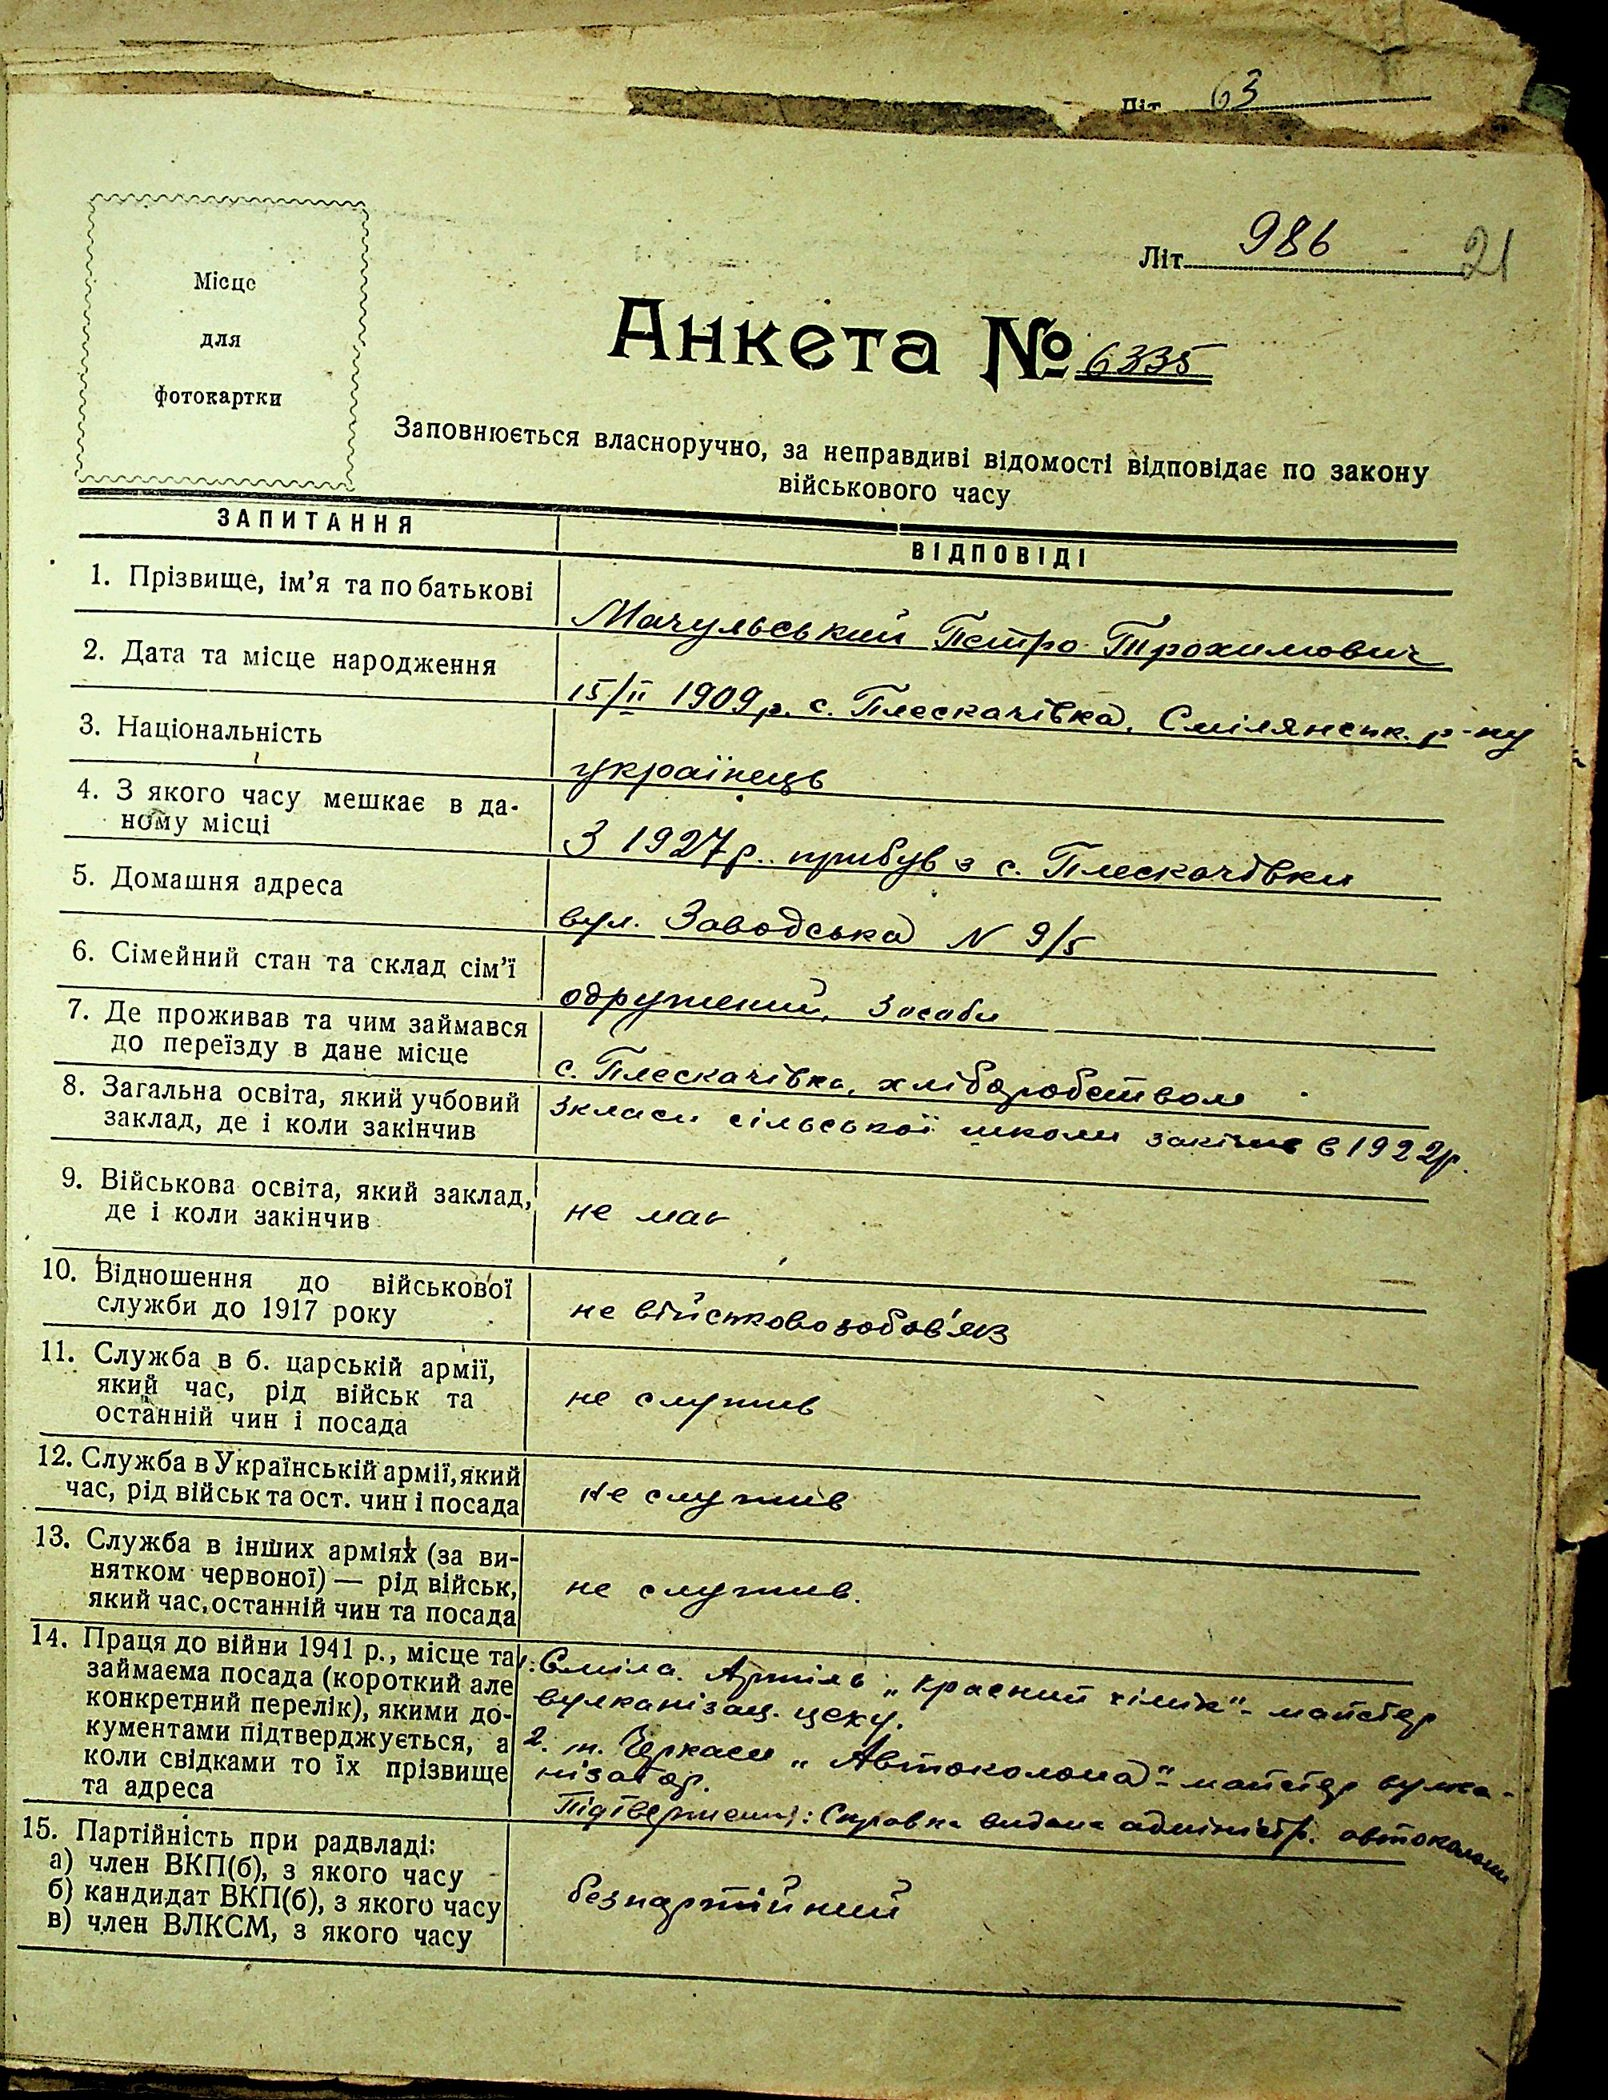 Літ 63
Літ 986 21
Місце
для
фотокартки
Анкета № 6335
Заповнюється власноручно, за неправдиві відомості відповідає по закону
військового часу
ЗАПИТАННЯ ВІДПОВІДІ
1. Прізвище, ім'я та по батькові
Мачульський Петро Трохимович
2. Дата та місце народження
15/II 1909 р. с. Плескачівка, Смілянськ. р-ну
3. Національність
українець
4. З якого часу мешкає в да-
ному місці
З 1927 р. прибув з с. Плескачівки
5. Домашня адреса
вул. Заводська N 9/5
6. Сімейний стан та склад сім'ї
одружений, 3 особи
7. Де проживав та чим займався
до переїзду в дане місце
с. Плескачівка, хліборобством
8. Загальна освіта, який учбовий
заклад, де і коли закінчив
3 класи сільської школи закінчив в 1922 р.
9. Військова освіта, який заклад,
де і коли закінчив
не має
10. Відношення до військової
служби до 1917 року
не військовозобов'яз
11. Служба в б. царській армії,
який час, рід військ та
останній чин і посада
не служив
12. Служба в Українській армії, який
час, рід військ та ост. чин і посада
не служив
13. Служба в інших арміях (за ви-
нятком червоної) — рід військ,
який час, останній чин та посада
не служив.
14. Праця до війни 1941 р., місце та
займаєма посада (короткий але
конкретний перелік), якими до-
кументами підтверджується, а
коли свідками то їх прізвище
та адреса
1. Сміла. Артіль „Красний хімік" - майстер
вулканізац. цеху.
2. м. Черкаси „Автоколона" - майстер вулка-
нізатор.
Підтвержени): Справка видана адміністр. автоколони
15. Партійність при радвладі:
а) член ВКП(б), з якого часу
б) кандидат ВКП(б), з якого часу
в) член ВЛКСМ, з якого часу
безпартійний